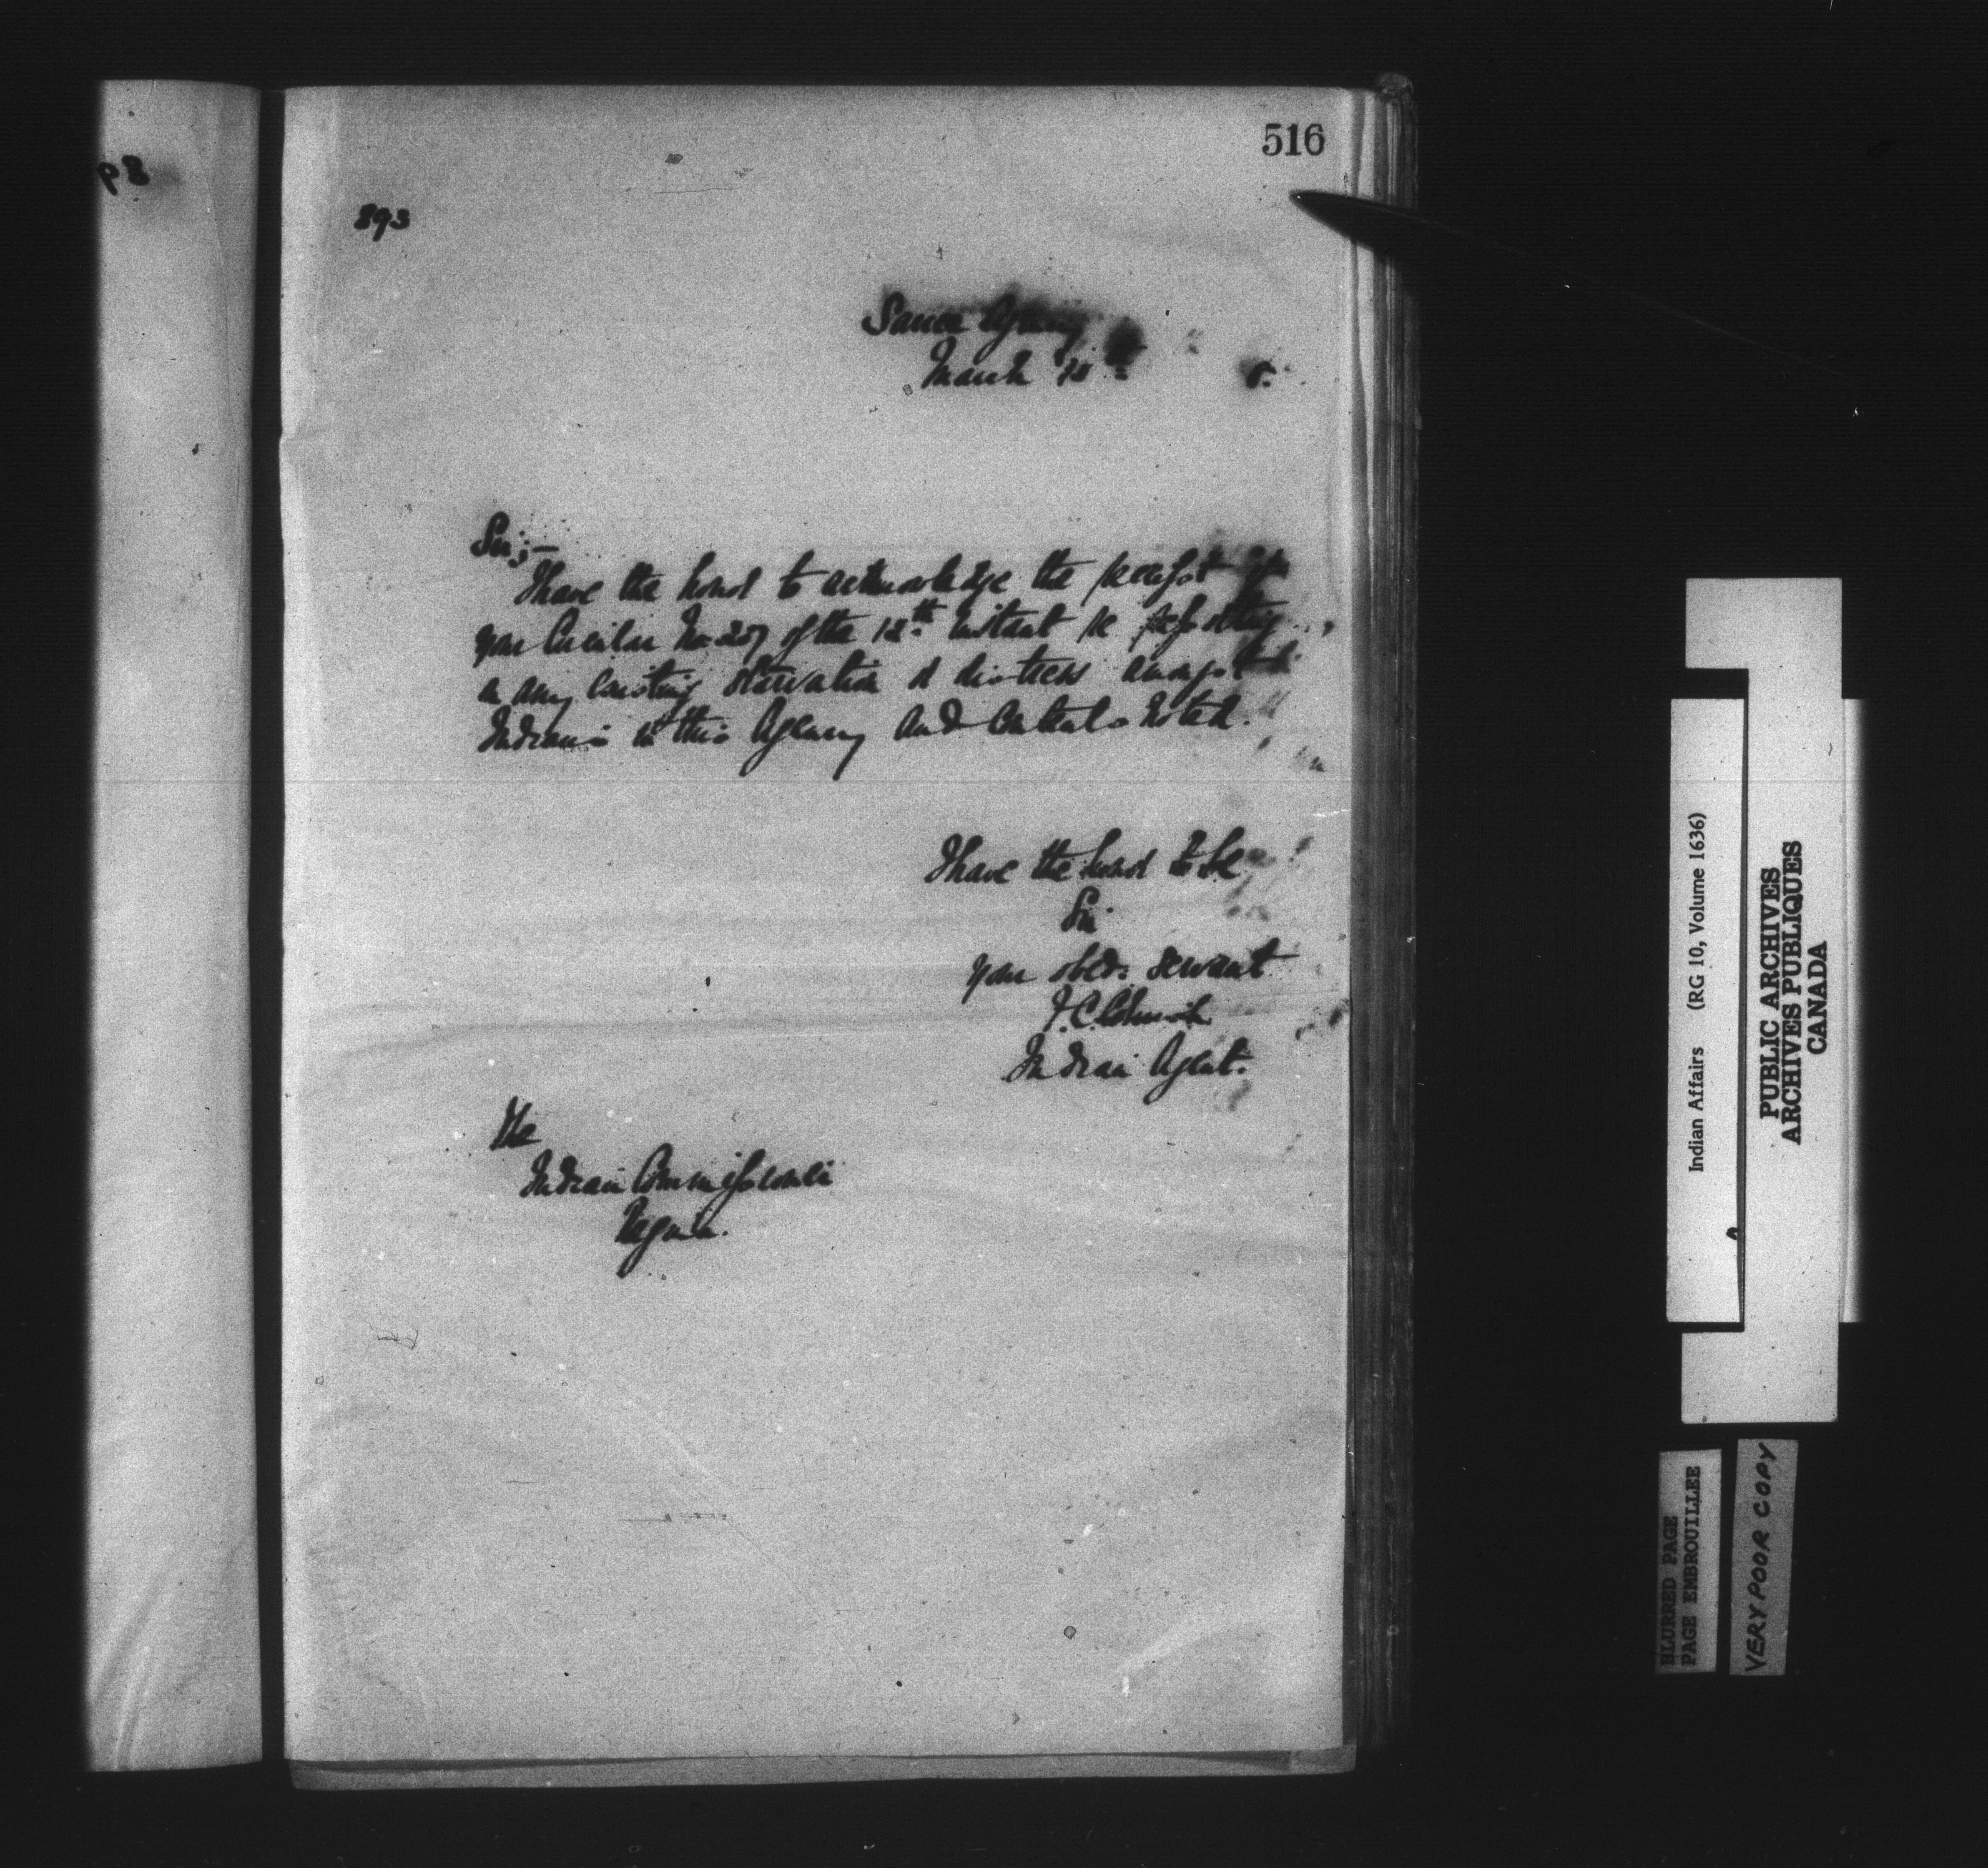 516
893
Sarcee Agency
March
Sir;-
I have the honor to acknowledge the receipt of
your Circular No 207 of the 12th Instant re reporting
on any existing starvation or distress amongst
Indians in this Agency and contents noted.
I have the honor to be
Sir
your obed: servant
Indian Agent.
The
Indian Commissioner
Regina.
Indian Affairs (RG 10, Volume 1636)
PUBLIC ARCHIVES
ARCHIVES PUBLIQUES
CANADA
BLURRED PAGE
PAGE EMBROUILLEE
VERY POOR COPY